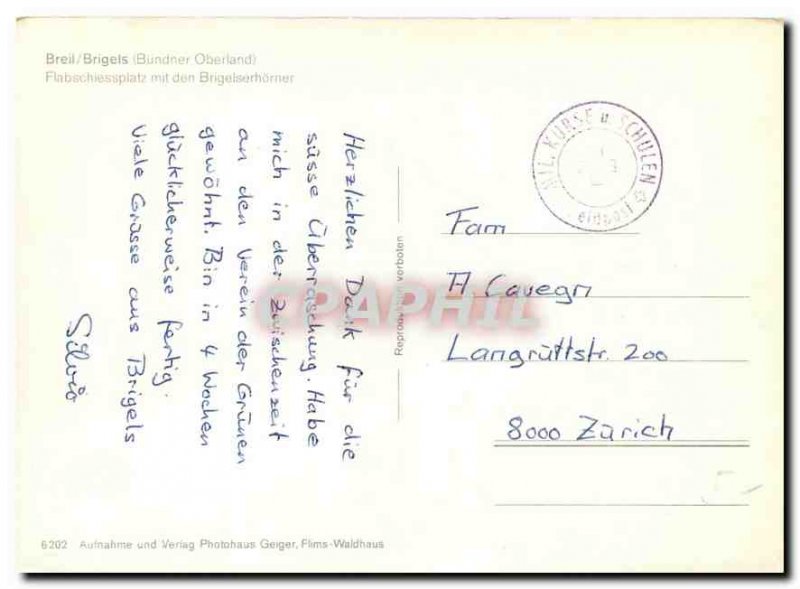 Breil/Brigels (Bündner Oberland)
Flabschiessplatz mit den Brigelserhörner
Herzlichen Dank für die
süsse Überraschung. Habe
mich in der zwischenzeit
an den Verein der Grünen
gewöhnt. Bin in 4 Wochen
glücklicherweise fertig.
Viele Grüsse aus Brigels
Silvio
Reproduktion verboten
MIL. KURSE u. SCHULEN
Feldpost
Fam
A Cavegn
Langrüttstr. 200
8000 Zürich
CPAPHIL
6202 Aufnahme und Verlag Photohaus Geiger, Flims-Waldhaus